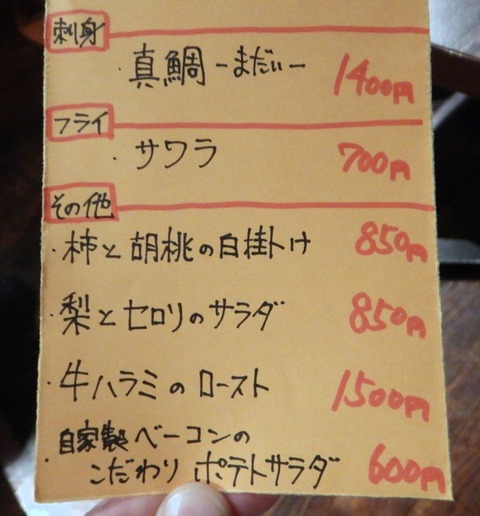 刺身
・真鯛ーまだいー 1400円
フライ
・サワラ 700円
その他
・柿と胡桃の白掛け 850円
・梨とセロリのサラダ 850円
・牛ハラミのロースト 1500円
・自家製ベーコンの
こだわりポテトサラダ 600円